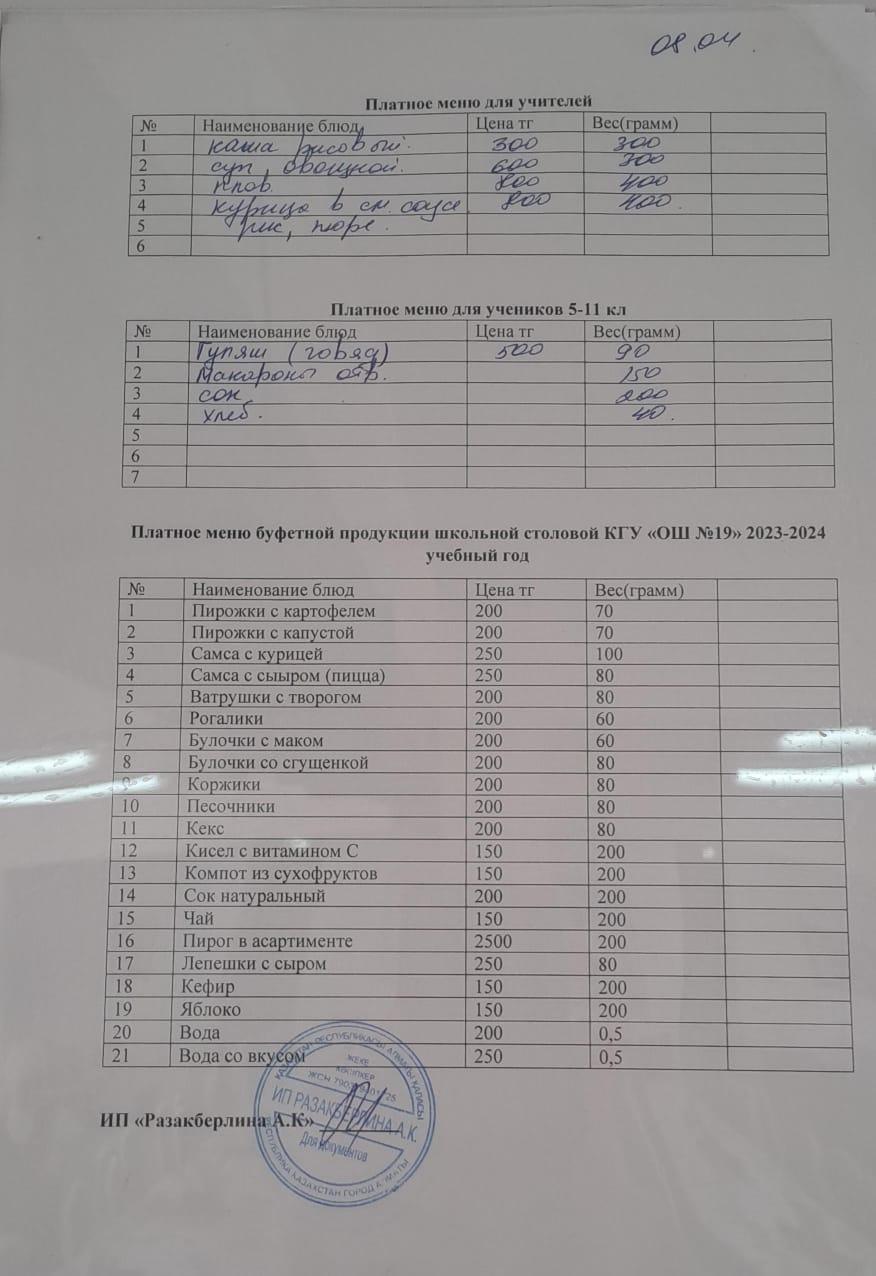 08.04.
Платное меню для учителей
№ Наименование блюд Цена тг Вес(грамм)
1 каша рисовый. 300 300
2 суп овощной. 600 300
3 плов. 800 400
4 курица в см. соусе 800 400.
5 рис, пюре.
6
Платное меню для учеников 5-11 кл
№ Наименование блюд Цена тг Вес(грамм)
1 Гуляш (говяд) 500 90
2 Макароны отв. 150
3 сок 200
4 хлеб. 40.
5
6
7
Платное меню буфетной продукции школьной столовой КГУ «ОШ №19» 2023-2024
учебный год
№ Наименование блюд Цена тг Вес(грамм)
1 Пирожки с картофелем 200 70
2 Пирожки с капустой 200 70
3 Самса с курицей 250 100
4 Самса с сыыром (пицца) 250 80
5 Ватрушки с творогом 200 80
6 Рогалики 200 60
7 Булочки с маком 200 60
8 Булочки со сгущенкой 200 80
9 Коржики 200 80
10 Песочники 200 80
11 Кекс 200 80
12 Кисел с витамином С 150 200
13 Компот из сухофруктов 150 200
14 Сок натуральный 200 200
15 Чай 150 200
16 Пирог в асартименте 2500 200
17 Лепешки с сыром 250 80
18 Кефир 150 200
19 Яблоко 150 200
20 Вода 200 0,5
21 Вода со вкусом 250 0,5
ИП «Разакберлина А.К»
ҚАЗАҚСТАН РЕСПУБЛИКАСЫ АЛМАТЫ ҚАЛАСЫ
ЖЕКЕ
КӘСІПКЕР
ЖСН
ИП РАЗАКБЕРЛИНА А.К.
Для документов
РЕСПУБЛИКА КАЗАХСТАН ГОРОД АЛМАТЫ